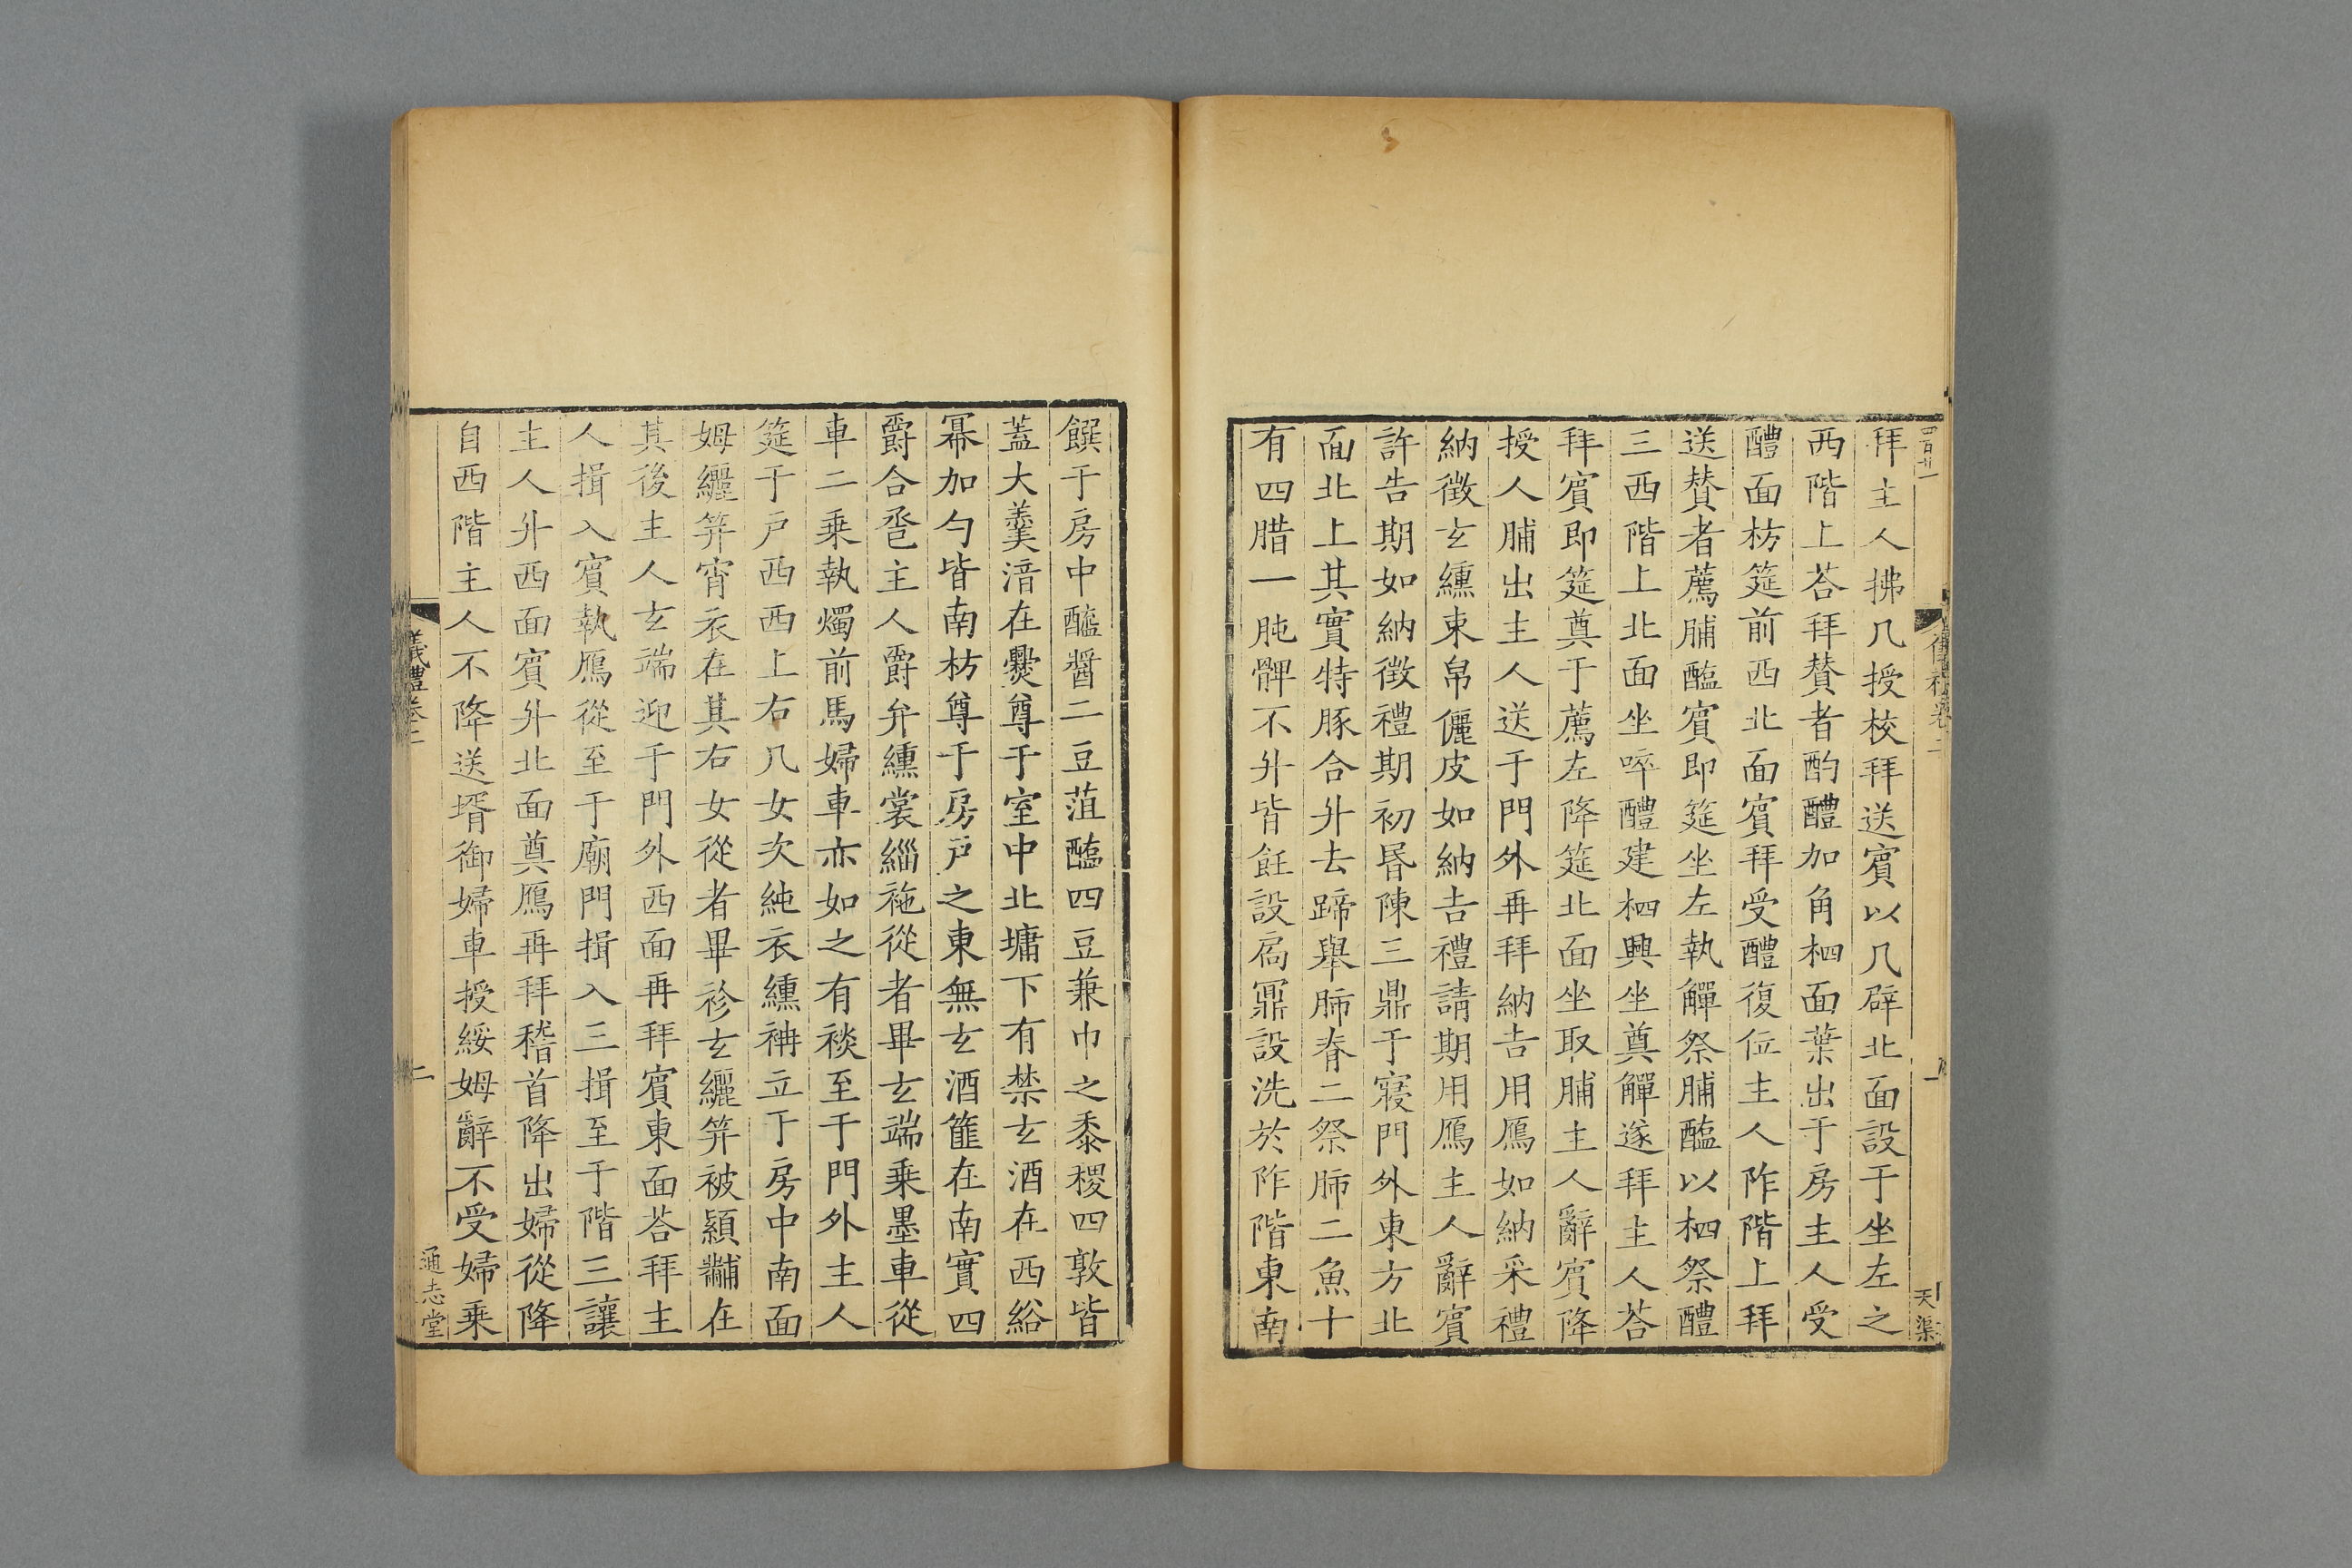 拜主人拂几授校拜送賓以几辟北面設于坐左之
西階上荅拜賛者酌醴加角柶面葉出于房主人受
醴面枋筵前西北面賓拜受醴復位主人阼階上拜
送賛者薦脯醢賓即筵坐左執觶祭脯醢以柶祭醴
三西階上北面坐啐醴建柶興坐奠觶遂拜主人荅
拜賓即筵奠于薦左降筵北面坐取脯主人辭賓降
授人脯出主人送于門外再拜納吉用鴈如納采禮
納徵玄纁束帛儷皮如納吉禮請期用鴈主人辭賓
許告期如納徵禮期初昬陳三鼎于寢門外東方北
面北上其實特豚合升去蹄舉肺脊二祭肺二魚十
有四腊一肫髀不升皆飪設扃鼏設洗於阼階東南
饌于房中醯醬二豆菹醢四豆兼巾之黍稷四敦皆
蓋大羹湇在爨尊于室中北墉下有禁玄酒在西綌
冪加勺皆南枋尊于房戶之東無玄酒篚在南實四
爵合巹主人爵弁纁裳緇袘從者畢玄端乗墨車從
車二乗執燭前馬婦車亦如之有裧至于門外主人
筵于戶西西上右几女次純衣纁袡立于房中南面
姆纚笄宵衣在其右女從者畢袗玄纚笄被潁黼在
其後主人玄端迎于門外西面再拜賓東面荅拜主
人揖入賓執鴈從至于廟門揖入三揖至于階三讓
主人升西面賓升北面奠鴈再拜稽首降出婦從降
自西階主人不降送壻御婦車授綏姆辭不受婦乗
儀禮卷二
二
通志堂